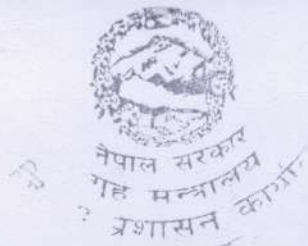 नेपाल सरकार
गृह मन्त्रालय
प्रशासन